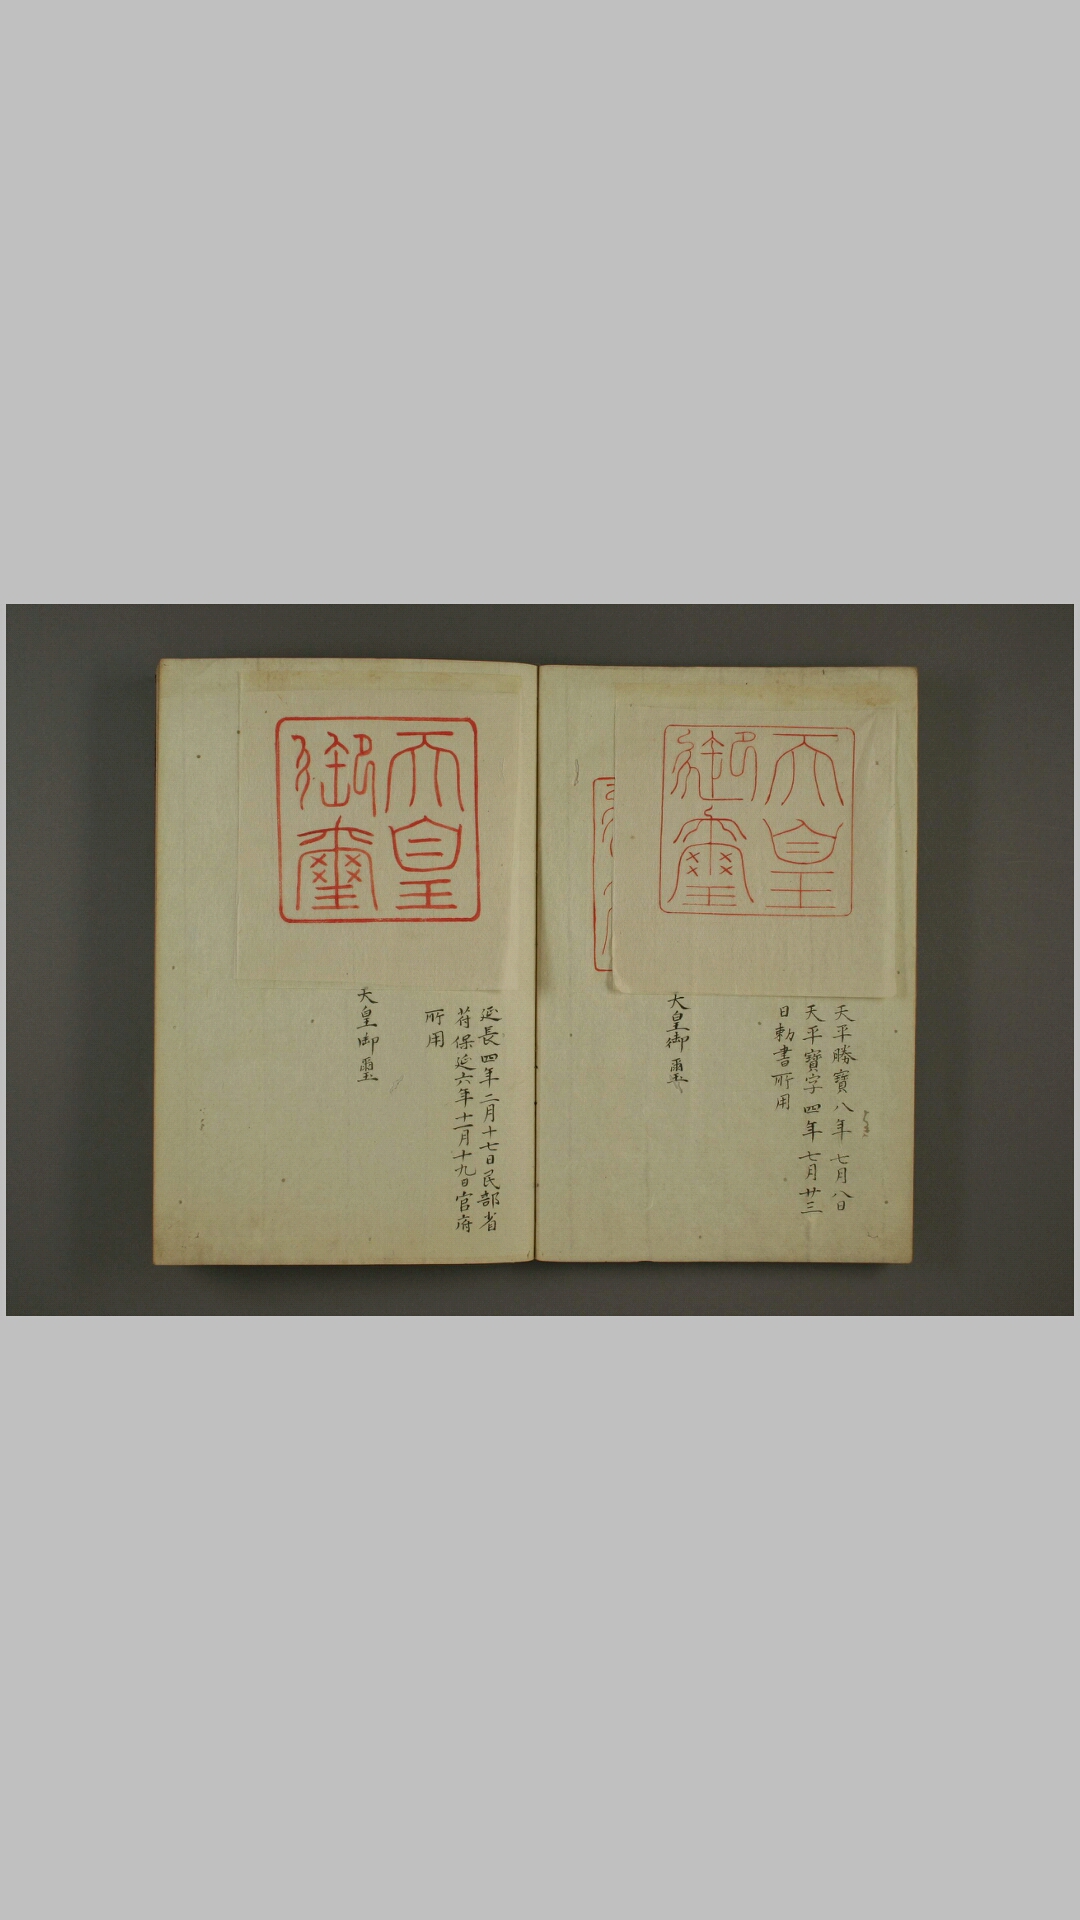 天皇
御璽
天平勝寶八年七月八日
天平寶字四年七月廿三
日勅書所用
天皇御璽
天皇
御璽
延長四年二月十七日民部省
符保延六年十一月十九日官府
所用
天皇御璽